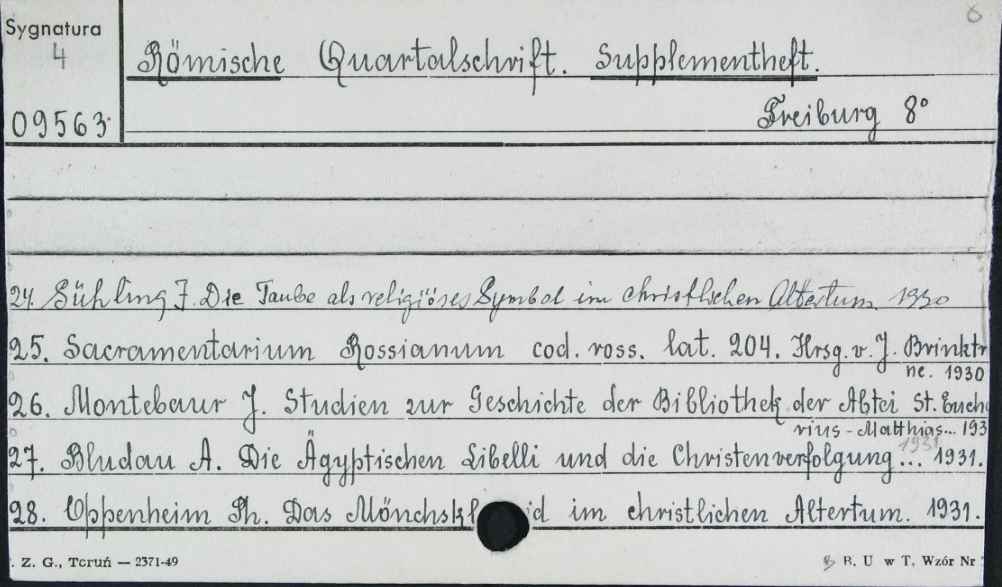 6
Sygnatura
4
Römische Quartalschrift. Supplementheft.
09563
Freiburg 8°
24. Sühling F. Die Taube als religiöses Symbol im christlichen Altertum 1930
25. Sacramentarium Rossianum cod. ross. lat. 204. Hrsg. v. J. Brinktr
ne. 1930
26. Montebaur J. Studien zur Geschichte der Bibliothek der Abtei St. Eucha
rius-Matthias... 193
1931
27. Bludau A. Die Ägyptischen Libelli und die Christenverfolgung... 1931.
28. Oppenheim Ph. Das Mönchskl id im christlichen Altertum. 1931.
. Z. G., Toruń — 2371-49
B. U w T. Wzór Nr